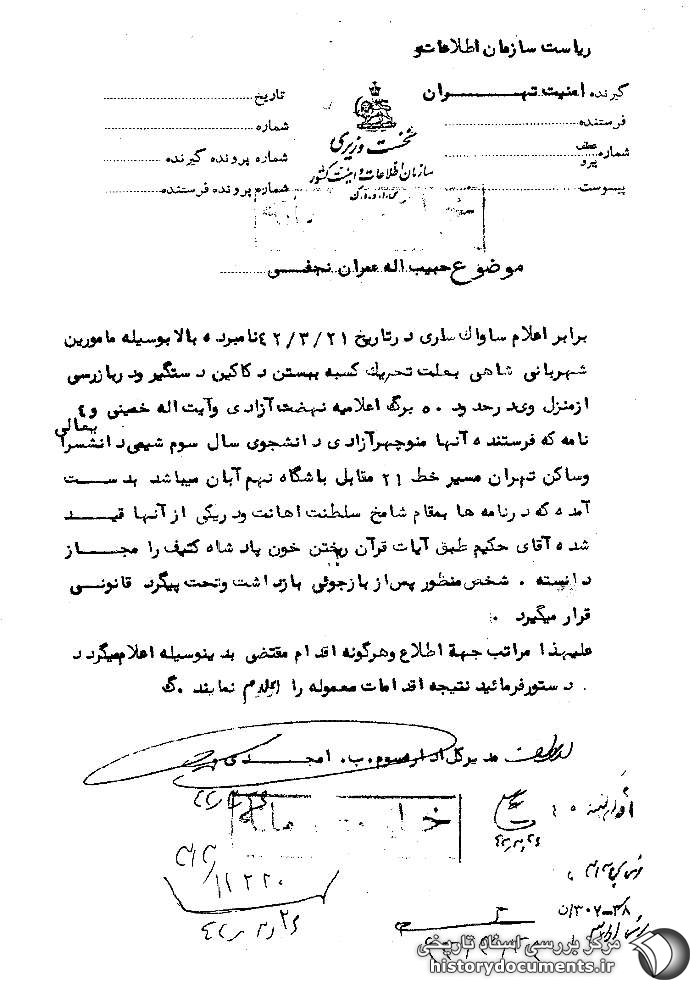 ریاست سازمان اطلاعات و
گیرنده امنیت تهران
تاریخ
فرستنده
شماره
نخست وزیری
شماره
عطف
پیرو
شماره پرونده گیرنده
سازمان اطلاعات و امنیت کشور
پیوست
شماره پرونده فرستنده
موضوع حبیب اله عمران نجفی
برابر اعلام ساواک ساری درتاریخ ۴۲/۳/۲۱ نامبرده بالا بوسیله مامورین
شهربانی شاهی بعلت تحریک کسبه ببستن دکاکین دستگیر ودربازرسی
ازمنزل وی درحدود ۵۰ برگ اعلامیه نهضت آزادی وآیت اله خمینی و۴
نامه که فرستنده آنها منوچهرآزادی دانشجوی سال سوم شیمی دانشسرا
یعالی
وساکن تهران مسیر خط ۲۱ مقابل باشگاه نهم آبان میباشد بدست
آمده که درنامه ها بمقام شامخ سلطنت اهانت ودریکی ازآنها قید
شده آقای حکیم طبق آیات قرآن ریختن خون پادشاه کثیف را مجاز
دانسته . شخص منظور پس از بازجوئی بازداشت وتحت پیگرد قانونی
قرار میگیرد .
علیهذا مراتب جهة اطلاع وهرگونه اقدام مقتضی بدینوسیله اعلام میگردد
. دستورفرمائید نتیجه اقدامات معموله را اعلام نمایند . ک
مدیرکل اداره سوم . ب . امجدی
۱۱۲۲۰
۳۰۷-۳۸/ن
مرکز بررسی اسناد تاریخی
historydocuments.ir